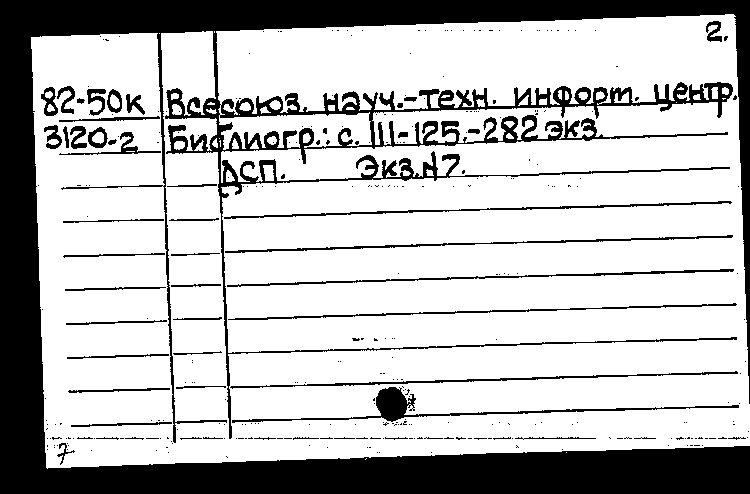 2.
82-50к Всесоюз. науч.-техн. информ. центр.
3120-2 Библиогр.: с. 111-125.-282 экз.
ДСП. Экз.N7.
7